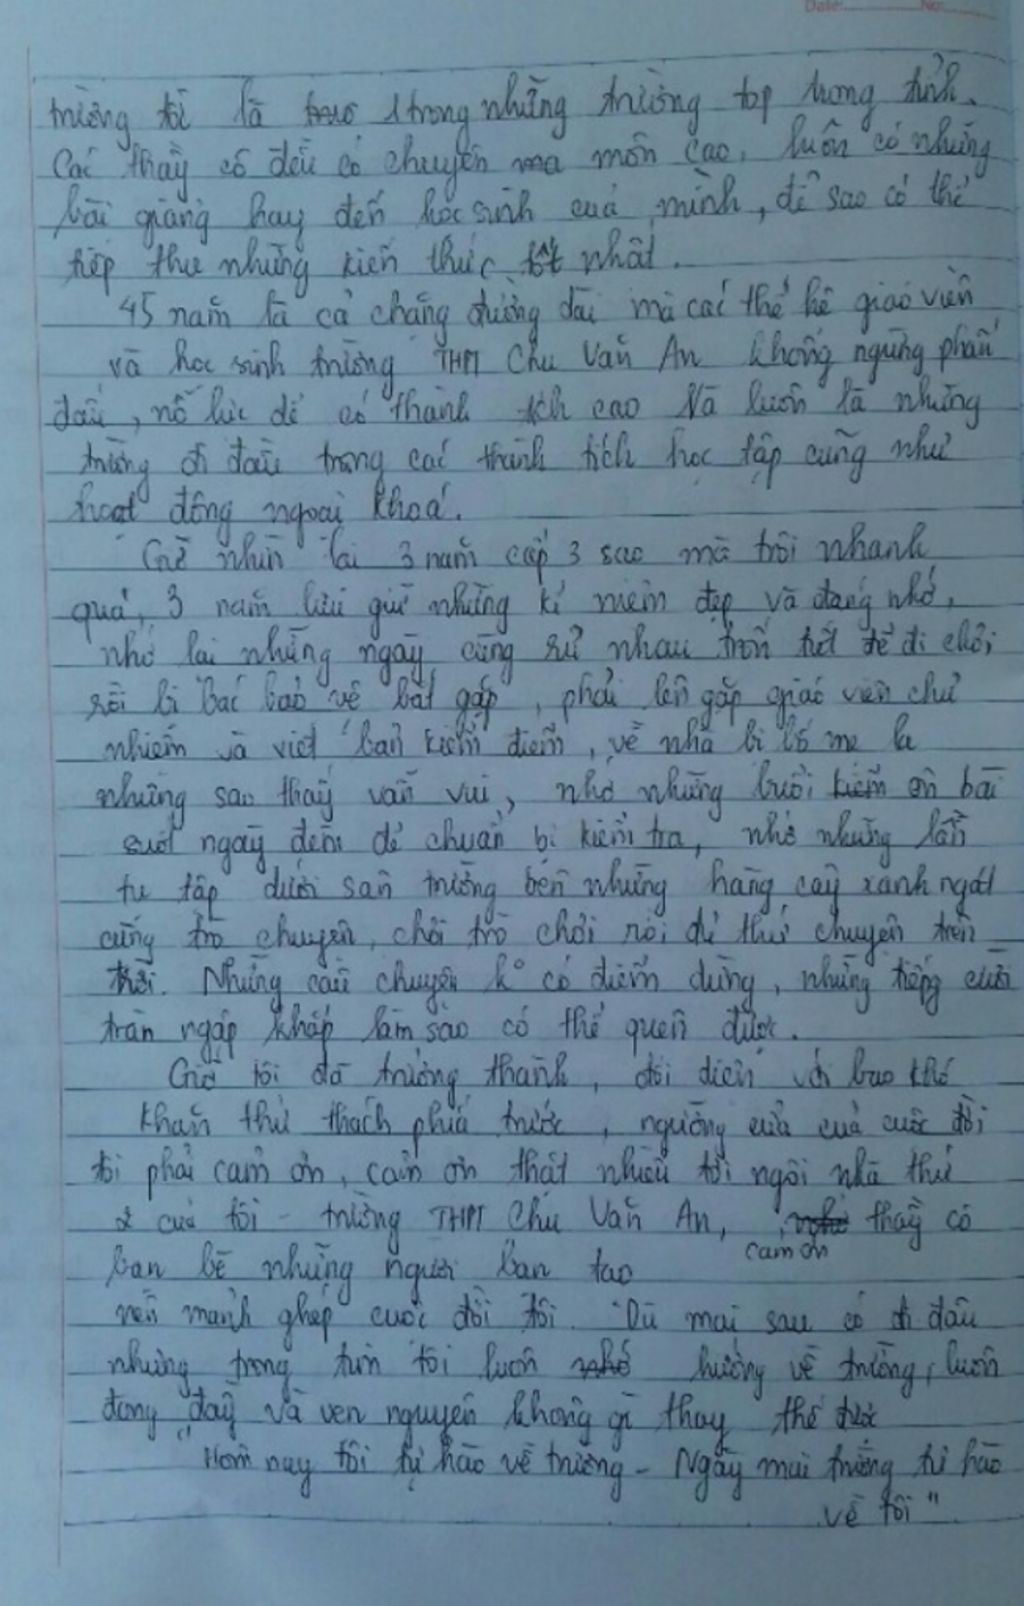 Date: No:
trường tôi là 1 trong những trường top trong tỉnh.
Các thầy cô đều có chuyên môn cao, luôn có những
bài giảng hay đến học sinh của mình, để sao có thể
tiếp thu những kiến thức tốt nhất.
45 năm là cả chặng đường dài mà các thế hệ giáo viên
và học sinh trường THPT Chu Văn An không ngừng phấn
đấu, nỗ lực để có thành tích cao và luôn là những
trường đi đầu trong các thành tích học tập cũng như
hoạt động ngoại khoá.
Giờ nhìn lại 3 năm cấp 3 sao mà trôi nhanh
quá, 3 năm lưu giữ những kỉ niệm đẹp và đáng nhớ,
nhớ lại những ngày cùng rủ nhau trốn tiết để đi chơi
rồi bị bác bảo vệ bắt gặp, phải lên gặp giáo viên chủ
nhiệm và viết bản kiểm điểm, về nhà bị bố mẹ la
nhưng sao thấy vẫn vui, nhớ những buổi ôn bài
suốt ngày đêm để chuẩn bị kiểm tra, nhớ những lần
tụ tập dưới sân trường bên những hàng cây xanh ngát
cùng trò chuyện, chơi trò chơi rồi đủ thứ chuyện trên
trời. Những câu chuyện k° có điểm dừng, những tiếng cười
tràn ngập khắp làm sao có thể quên được.
Giờ tôi đã trưởng thành, đối diện với bao khó
khăn thử thách phía trước, ngưỡng cửa của cuộc đời
tôi phải cảm ơn, cảm ơn thật nhiều tới ngôi nhà thứ
2 của tôi - trường THPT Chu Văn An, thầy cô
cảm ơn
bạn bè những người bạn tạo
nên mảnh ghép cuộc đời tôi. Dù mai sau có đi đâu
nhưng trong tim tôi luôn nhớ hướng về trường, luôn
đong đầy và vẹn nguyên không gì thay thế được
"Hôm nay tôi tự hào về trường - Ngày mai trường tự hào
về tôi"